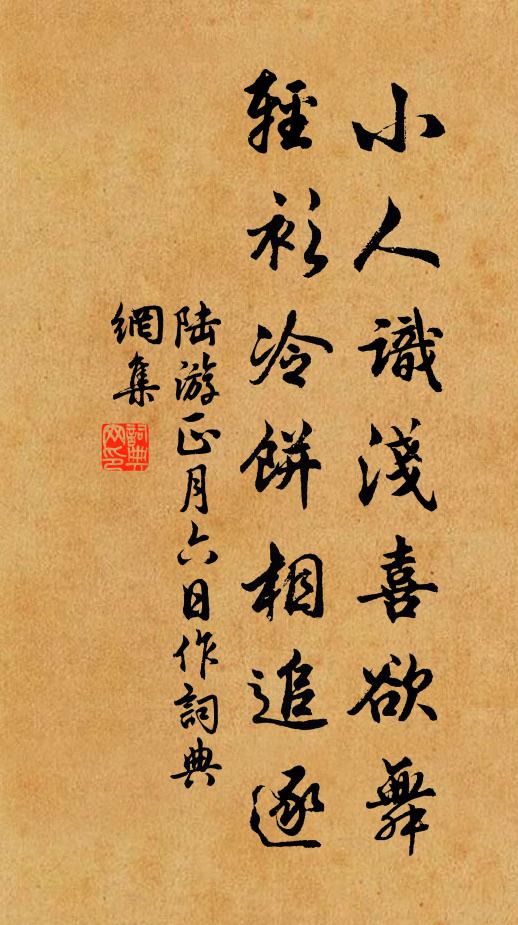 小人識淺喜欲舞
輕衫冷餅相追逐
陸游正月六日作詞典
網集
詞典網印